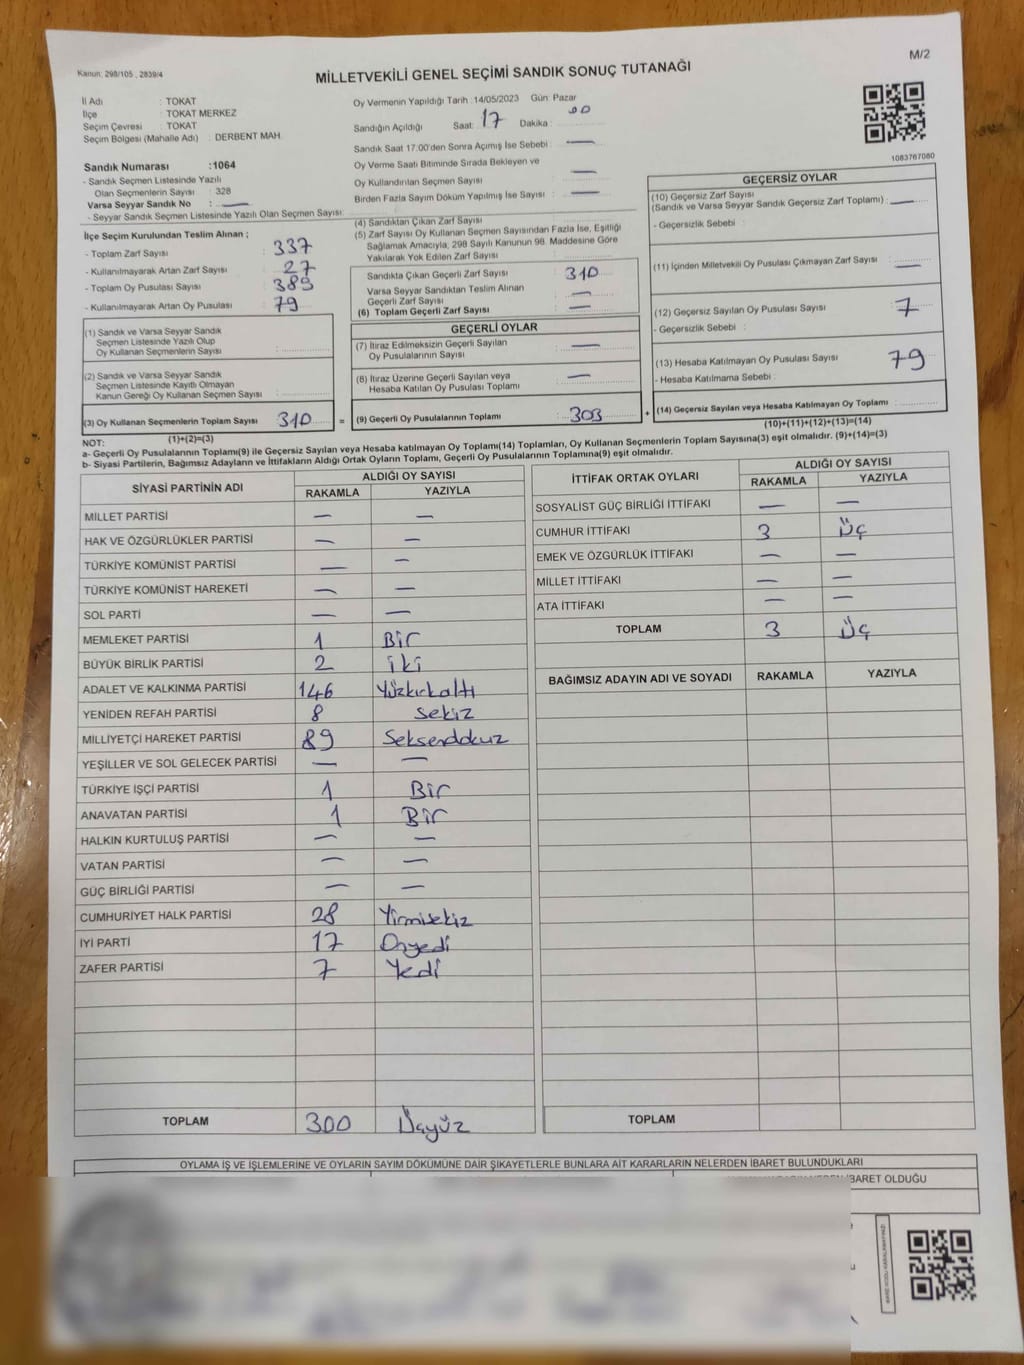 Kanun: 298/105 , 2839/4
M/2
MİLLETVEKİLİ GENEL SEÇİMİ SANDIK SONUÇ TUTANAĞI
İl Adı : TOKAT
İlçe : TOKAT MERKEZ
Seçim Çevresi : TOKAT
Seçim Bölgesi (Mahalle Adı) : DERBENT MAH.
Sandık Numarası :1064
- Sandık Seçmen Listesinde Yazılı
Olan Seçmenlerin Sayısı : 328
Varsa Seyyar Sandık No : —
- Seyyar Sandık Seçmen Listesinde Yazılı Olan Seçmen Sayısı:
Oy Vermenin Yapıldığı Tarih :14/05/2023 Gün: Pazar
Sandığın Açıldığı Saat: 17 Dakika: 00
Sandık Saat 17:00'den Sonra Açımış İse Sebebi : —
Oy Verme Saati Bitiminde Sırada Bekleyen ve
Oy Kullandırılan Seçmen Sayısı : —
Birden Fazla Sayım Döküm Yapılmış İse Sayısı : —
1083767080
İlçe Seçim Kurulundan Teslim Alınan ;
- Toplam Zarf Sayısı : 337
- Kullanılmayarak Artan Zarf Sayısı : 27
- Toplam Oy Pusulası Sayısı : 389
- Kullanılmayarak Artan Oy Pusulası : 79
(1) Sandık ve Varsa Seyyar Sandık
Seçmen Listesinde Yazılı Olup
Oy Kullanan Seçmenlerin Sayısı :
(2) Sandık ve Varsa Seyyar Sandık
Seçmen Listesinde Kayıtlı Olmayan
Kanun Gereği Oy Kullanan Seçmen Sayısı :
(3) Oy Kullanan Seçmenlerin Toplam Sayısı : 310 =
(1)+(2)=(3)
(4) Sandıktan Çıkan Zarf Sayısı :
(5) Zarf Sayısı Oy Kullanan Seçmen Sayısından Fazla İse, Eşitliği
Sağlamak Amacıyla, 298 Sayılı Kanunun 98. Maddesine Göre
Yakılarak Yok Edilen Zarf Sayısı :
Sandıkta Çıkan Geçerli Zarf Sayısı : 310
Varsa Seyyar Sandıktan Teslim Alınan
Geçerli Zarf Sayısı : —
(6) Toplam Geçerli Zarf Sayısı : —
GEÇERLİ OYLAR
(7) İtiraz Edilmeksizin Geçerli Sayılan
Oy Pusulalarının Sayısı : —
(8) İtiraz Üzerine Geçerli Sayılan veya
Hesaba Katılan Oy Pusulası Toplamı : —
(9) Geçerli Oy Pusulalarının Toplamı : 303 +
GEÇERSİZ OYLAR
(10) Geçersiz Zarf Sayısı
(Sandık ve Varsa Seyyar Sandık Geçersiz Zarf Toplamı) : —
- Geçersizlik Sebebi :
(11) İçinden Milletvekili Oy Pusulası Çıkmayan Zarf Sayısı : —
(12) Geçersiz Sayılan Oy Pusulası Sayısı : 7
- Geçersizlik Sebebi :
(13) Hesaba Katılmayan Oy Pusulası Sayısı : 79
- Hesaba Katılmama Sebebi :
(14) Geçersiz Sayılan veya Hesaba Katılmayan Oy Toplamı :
(10)+(11)+(12)+(13)=(14)
NOT:
a- Geçerli Oy Pusulalarının Toplamı(9) ile Geçersiz Sayılan veya Hesaba katılmayan Oy Toplamı(14) Toplamları, Oy Kullanan Seçmenlerin Toplam Sayısına(3) eşit olmalıdır. (9)+(14)=(3)
b- Siyasi Partilerin, Bağımsız Adayların ve İttifakların Aldığı Ortak Oyların Toplamı, Geçerli Oy Pusulalarının Toplamına(9) eşit olmalıdır.
SİYASİ PARTİNİN ADI ALDIĞI OY SAYISI
RAKAMLA YAZIYLA
MİLLET PARTİSİ — —
HAK VE ÖZGÜRLÜKLER PARTİSİ — —
TÜRKİYE KOMÜNİST PARTİSİ — —
TÜRKİYE KOMÜNİST HAREKETİ — —
SOL PARTİ — —
MEMLEKET PARTİSİ 1 Bir
BÜYÜK BİRLİK PARTİSİ 2 iki
ADALET VE KALKINMA PARTİSİ 146 Yüzkırkaltı
YENİDEN REFAH PARTİSİ 8 sekiz
MİLLİYETÇİ HAREKET PARTİSİ 89 Seksendokuz
YEŞİLLER VE SOL GELECEK PARTİSİ — —
TÜRKİYE İŞÇİ PARTİSİ 1 Bir
ANAVATAN PARTİSİ 1 Bir
HALKIN KURTULUŞ PARTİSİ — —
VATAN PARTİSİ — —
GÜÇ BİRLİĞİ PARTİSİ — —
CUMHURİYET HALK PARTİSİ 28 Yirmisekiz
İYİ PARTİ 17 Onyedi
ZAFER PARTİSİ 7 Yedi
TOPLAM 300 Üçyüz
İTTİFAK ORTAK OYLARI ALDIĞI OY SAYISI
RAKAMLA YAZIYLA
SOSYALİST GÜÇ BİRLİĞİ İTTİFAKI — —
CUMHUR İTTİFAKI 3 Üç
EMEK VE ÖZGÜRLÜK İTTİFAKI — —
MİLLET İTTİFAKI — —
ATA İTTİFAKI — —
TOPLAM 3 Üç
BAĞIMSIZ ADAYIN ADI VE SOYADI RAKAMLA YAZIYLA
TOPLAM
OYLAMA İŞ VE İŞLEMLERİNE VE OYLARIN SAYIM DÖKÜMÜNE DAİR ŞİKAYETLERLE BUNLARA AİT KARARLARIN NELERDEN İBARET BULUNDUKLARI
İBARET OLDUĞU